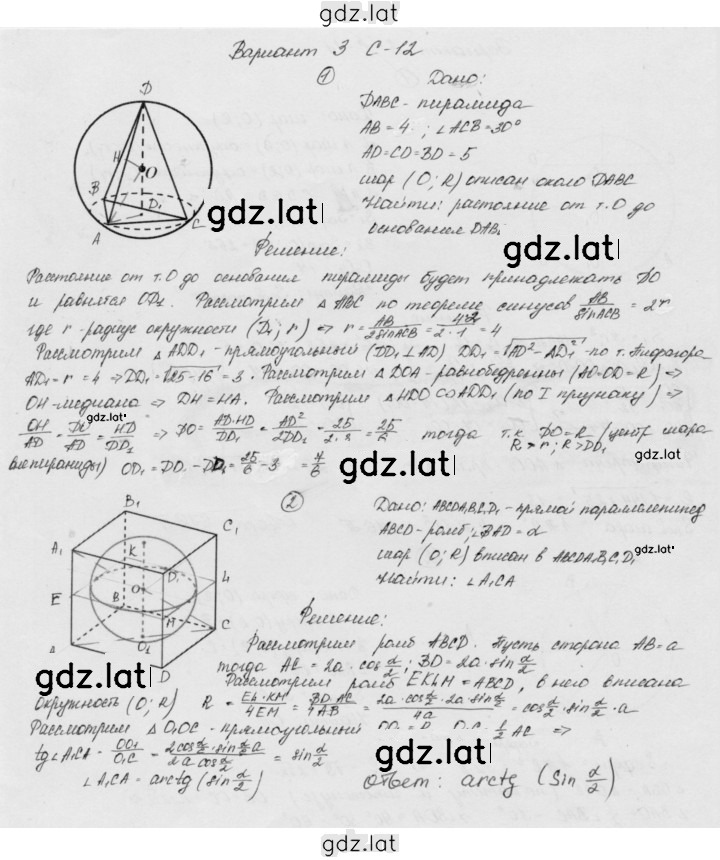 gdz.lat
Вариант 3 С-12
①
Дано:
DABC - пирамида
AB = 4 ; ∠ACB = 30°
AD = CD = BD = 5
шар (O; R) описан около DABC
Найти: растояние от т.О до
основания DAB
D
H
O
B
D₁
A
C
gdz.lat
gdz.lat
Решение:
Расстояние от т.О до основания пирамиды будет принадлежать DO
и равнятся OD₁. Рассмотрим △ABC по теореме синусов AB/sinACB = 2r
где r - радиус окружности (D₁; r) ⇒ r = AB/2sinACB = 4·2/2·1 = 4
Рассмотрим △ADD₁ - прямоугольный (DD₁ ⊥ AD) DD₁ = √AD² - AD₁² - по т. Пифагора
AD₁ = r = 4 ⇒ DD₁ = √25-16 = 3. Рассмотрим △DOA - равнобедренны (AO=OD=R) ⇒
OH - медиана ⇒ DH = HA. Рассмотрим △HDO ∾ ADD₁ (по I признаку) ⇒
gdz.lat
OH/AD = DO/AD = HD/DD₁ ⇒ DO = AD·HD/DD₁ = AD²/2DD₁ = 25/2·3 = 25/6 тогда т.к. DO = R (центр шара
R > r ; R > DD₁
в пирамиды) OD₁ = DD₁ - DD₁ = 25/6 - 3 = 7/6
gdz.lat
②
Дано: ABCDA₁B₁C₁D₁ - прямой параллелепипед
ABCD - ромб ; ∠BAD = α
шар (O; R) вписан в ABCDA₁B₁C₁D₁
Найти: ∠A₁CA
B₁
C₁
A₁
K
D₁
E
O
L
B
M
C
A
O₁
D
gdz.lat
gdz.lat
Решение:
Рассмотрим ромб ABCD. Пусть сторона AB = a
тогда AC = 2a·cos α/2 ; BD = 2a·sin α/2
Рассмотрим ромб EKLM = ABCD, в него вписана
окружность (O; R) R = EL·KM/4EM = BD·AC/4AB = 2a·cos α/2·2a·sin α/2/4a = cos α/2·sin α/2·a
Рассмотрим △O₁OC - прямоугольный OO₁ = R O₁C = 1/2 AC ⇒
tg∠A₁CA = OO₁/O₁C = 2cos α/2·sin α/2 a/2a cos α/2 = sin α/2
gdz.lat
∠A₁CA = arctg (sin α/2)
ответ: arctg (Sin α/2)
gdz.lat